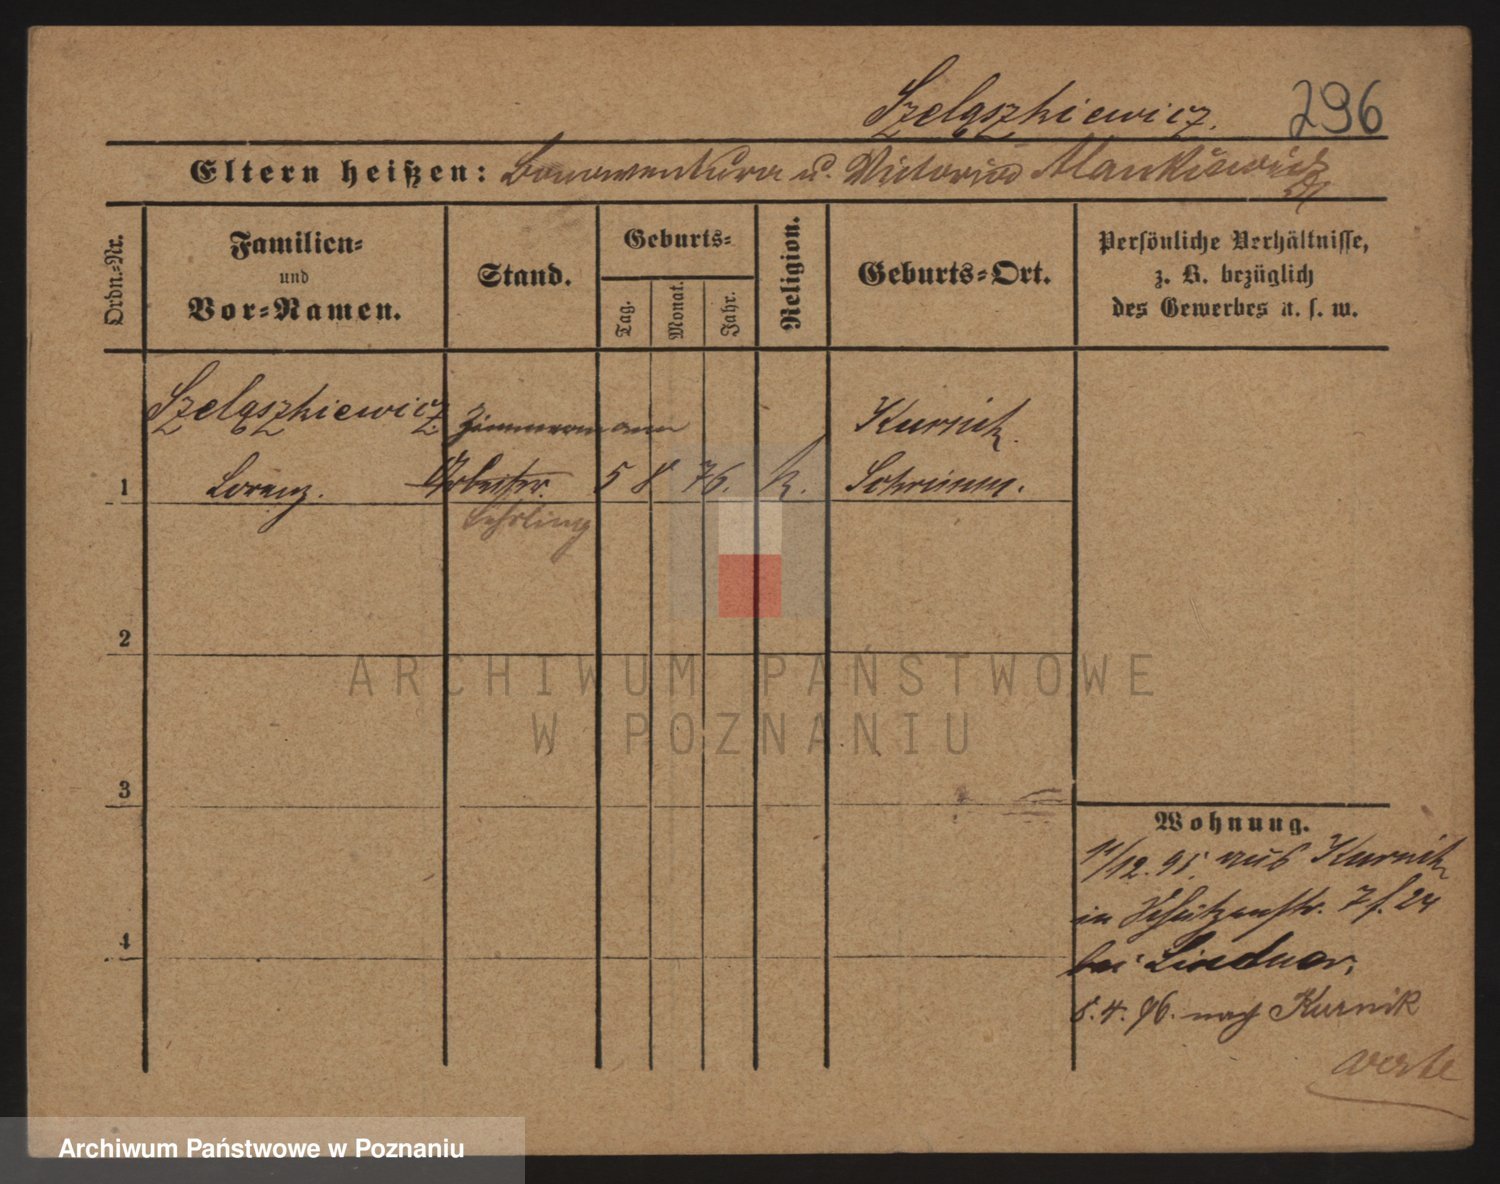 Szelągzkiewicz. 296
Eltern heißen: Bonawentura u. Victoria Mankiewicz
Ordn.-Nr.
Familien-
und
Vor-Namen.
Stand.
Geburts-
Tag.
Monat.
Jahr.
Religion.
Geburts-Ort.
Persönliche Verhältnisse,
z. B. bezüglich
des Gewerbes u. s. w.
Szelągzkiewicz Zimmermann Kurnik
1 Lorenz. Arbeiter. 5 8 76. k. Schrimm.
Lehrling
2
3
4
Wohnung.
/12. 95. aus Kurnik
in Schützenstr. 7 f. 24
bei Lindner,
8. 4. 96. nach Kurnik
verte
ARCHIWUM PAŃSTWOWE
W POZNANIU
Archiwum Państwowe w Poznaniu